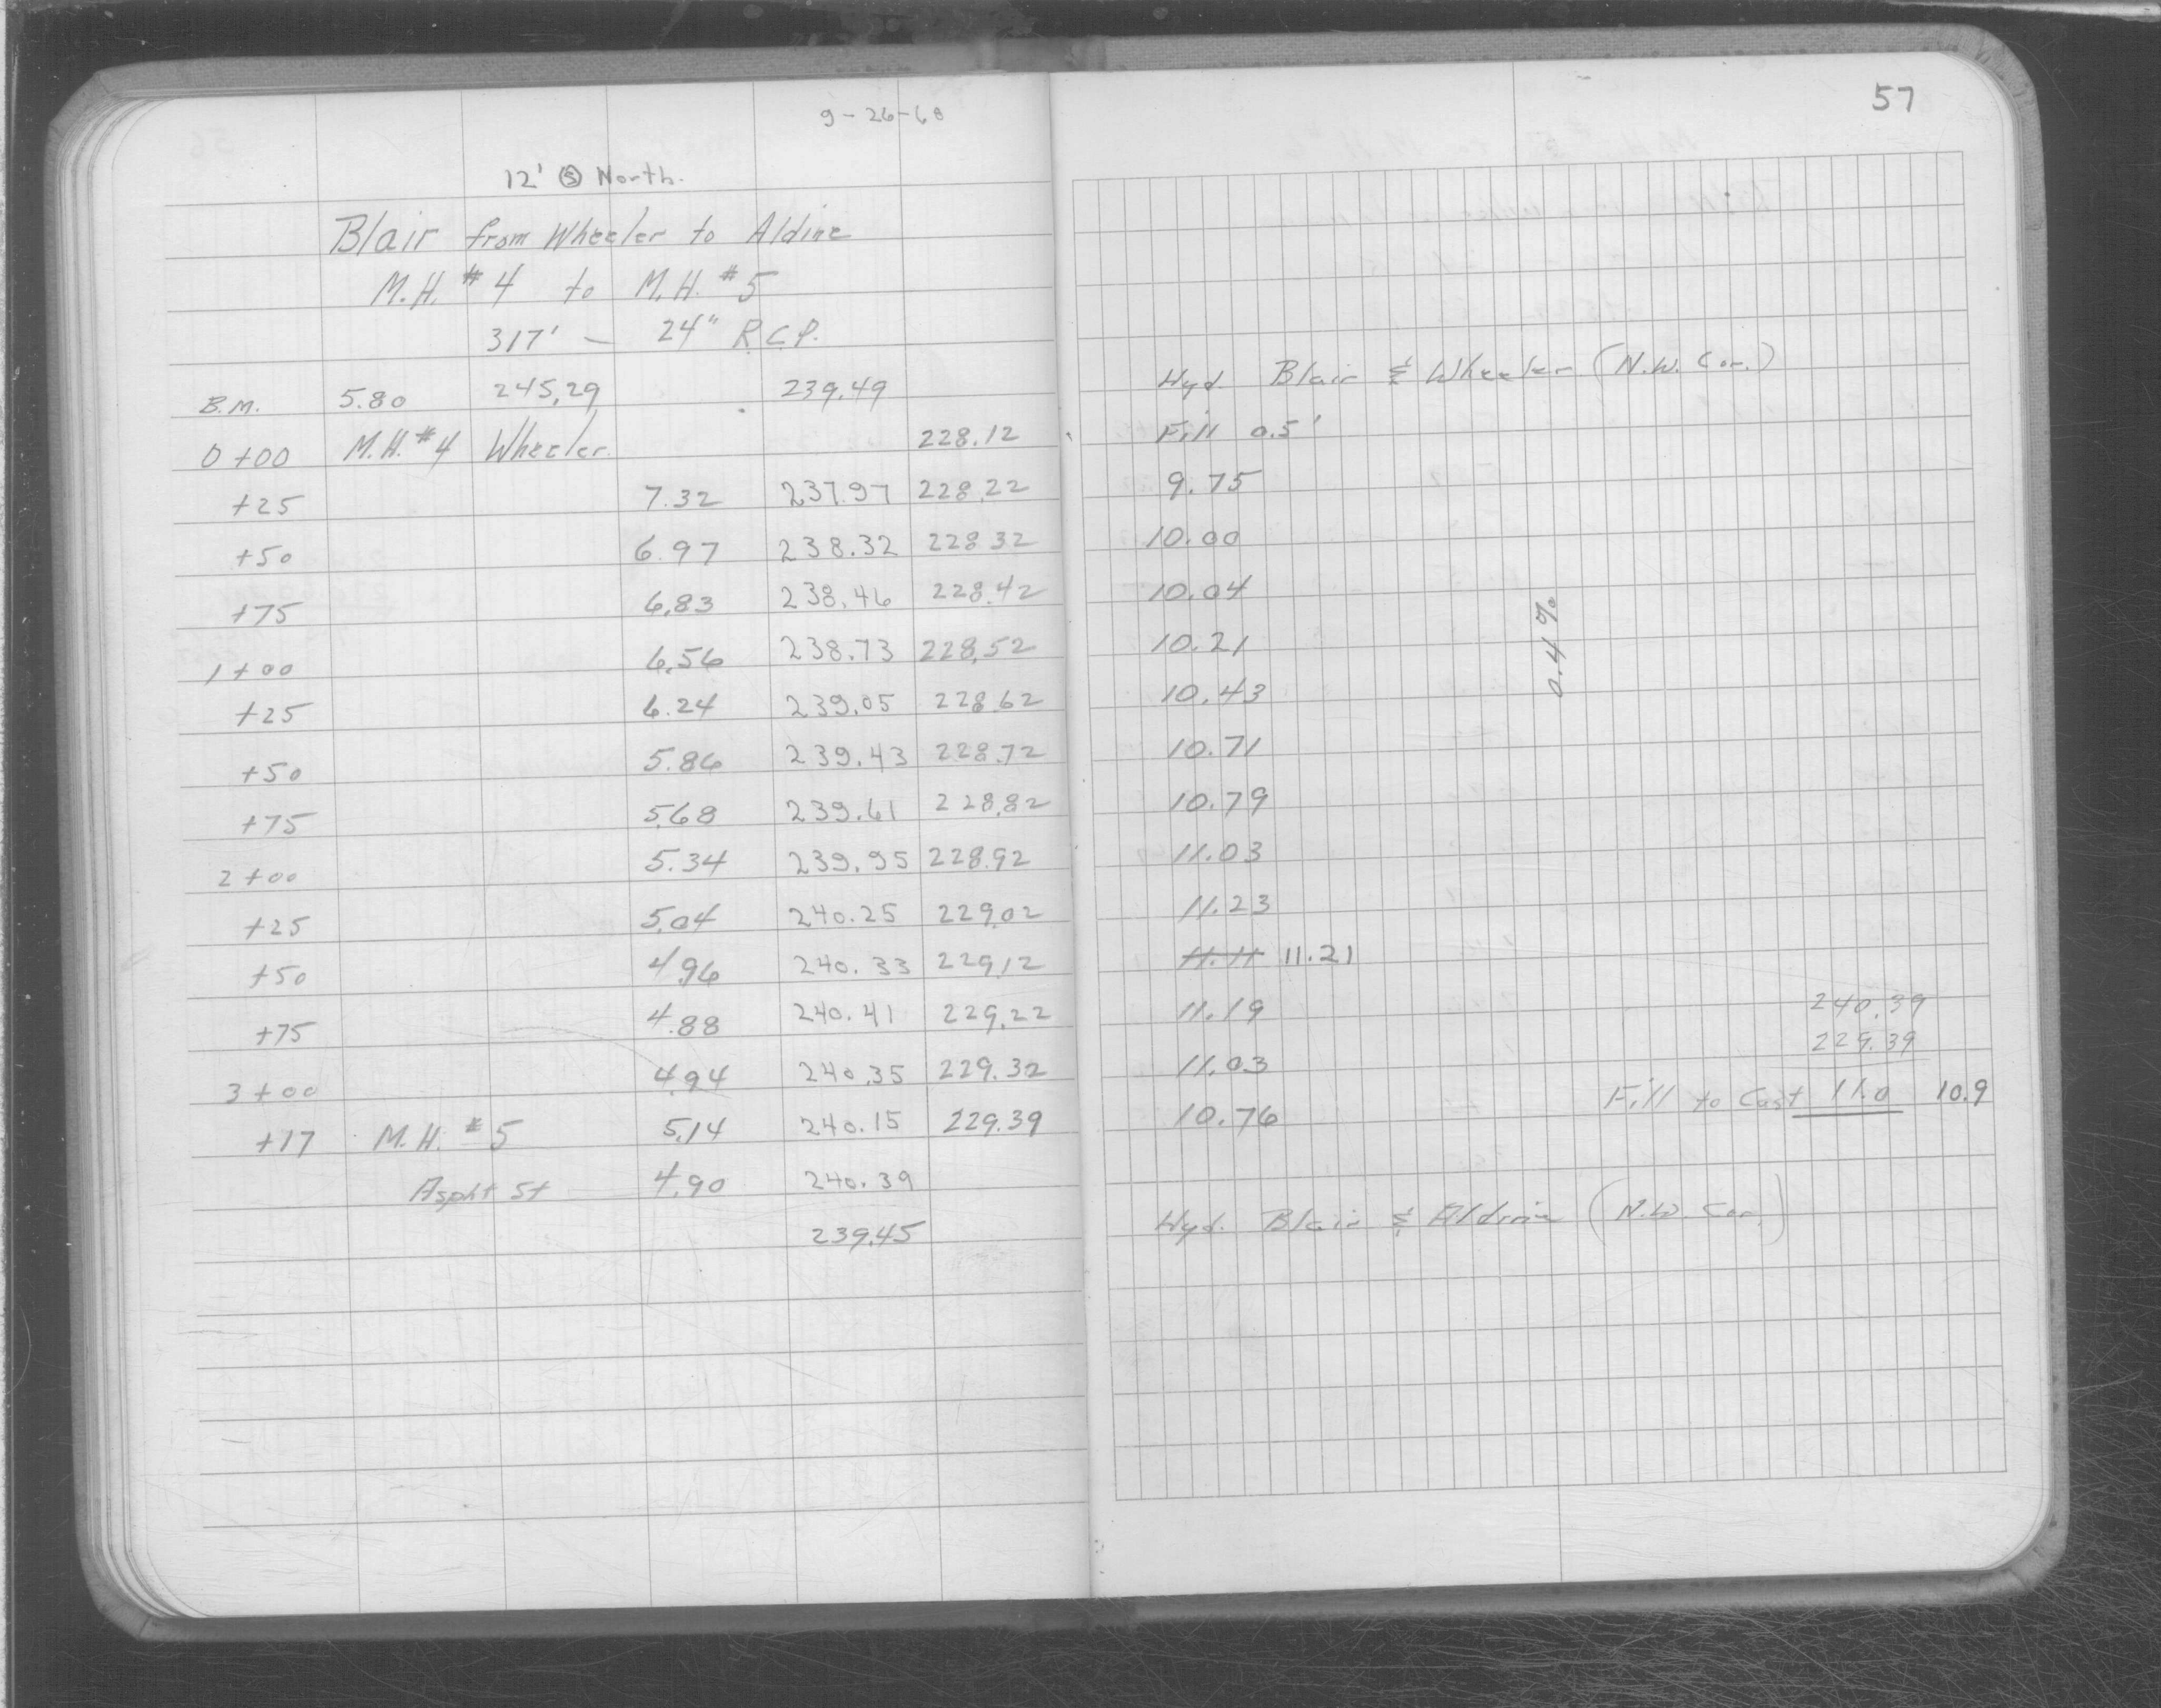 9-26-68
12' Ⓢ North.
Blair from Wheeler to Aldine
M.H. #4 to M.H. #5
317' — 24" R.C.P.
B.M. 5.80 245.29 239.49
0+00 M.H. #4 Wheeler 228.12
+25 7.32 237.97 228.22
+50 6.97 238.32 228.32
+75 6.83 238.46 228.42
1+00 6.56 238.73 228.52
+25 6.24 239.05 228.62
+50 5.86 239.43 228.72
+75 5.68 239.61 228.82
2+00 5.34 239.95 228.92
+25 5.04 240.25 229.02
+50 4.96 240.33 229.12
+75 4.88 240.41 229.22
3+00 4.94 240.35 229.32
+17 M.H. #5 5.14 240.15 229.39
Asphlt St 4.90 240.39
239.45
57
Hyd. Blair & Wheeler (N.W. Cor.)
Fill 0.5'
9.75
10.00
10.04
10.21
0.4%
10.43
10.71
10.79
11.03
11.23
11.11 11.21
11.19
240.39
229.39
11.03
Fill to Cast 11.0 10.9
10.76
Hyd. Blair & Aldine (N.W. Cor.)